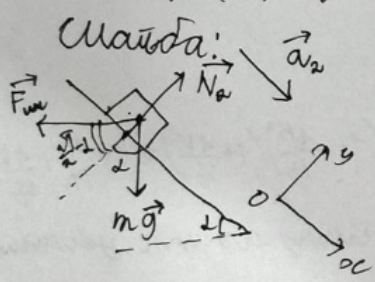 Шайба:
a₂
F_ин
N₂
π/2 - α
α
mg
α
O
y
x